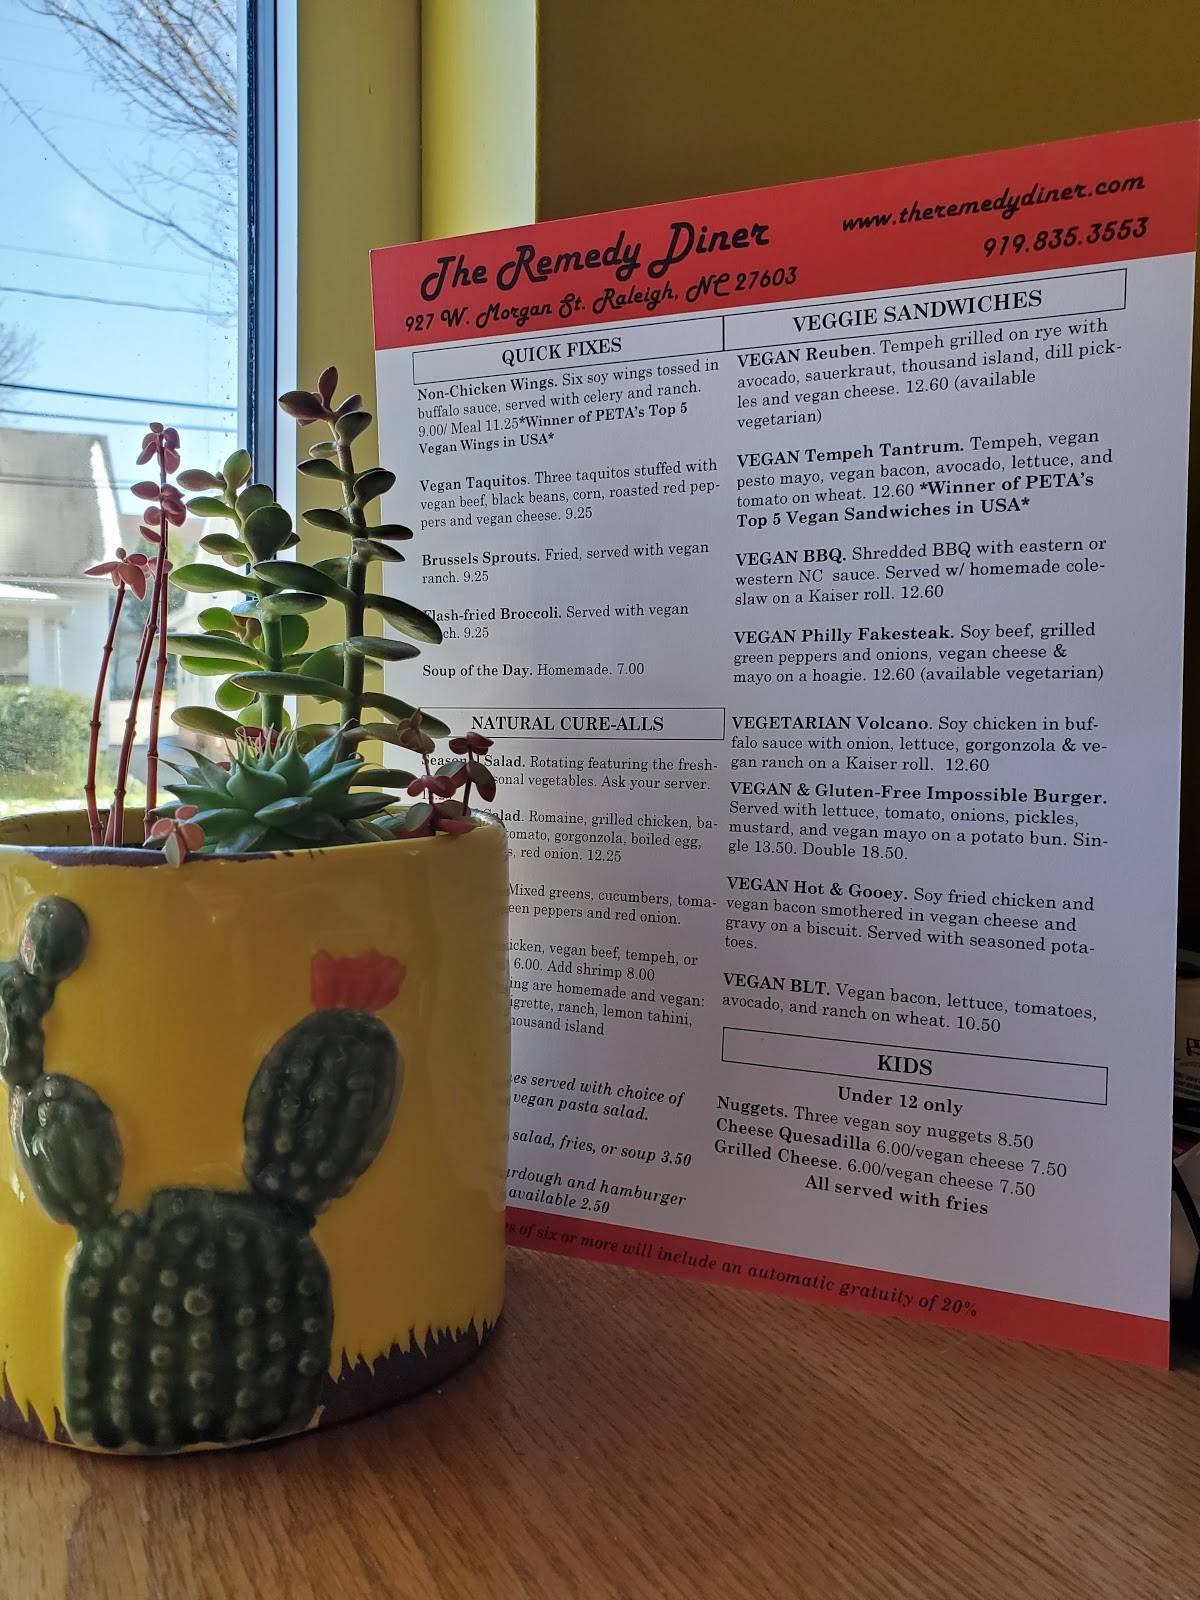 The Remedy Diner
927 W. Morgan St. Raleigh, NC 27603
www.theremedydiner.com
919.835.3553
QUICK FIXES
Non-Chicken Wings. Six soy wings tossed in
buffalo sauce, served with celery and ranch.
9.00/ Meal 11.25*Winner of PETA's Top 5
Vegan Wings in USA*
Vegan Taquitos. Three taquitos stuffed with
vegan beef, black beans, corn, roasted red pep-
pers and vegan cheese. 9.25
Brussels Sprouts. Fried, served with vegan
ranch. 9.25
Flash-fried Broccoli. Served with vegan
ch. 9.25
Soup of the Day. Homemade. 7.00
NATURAL CURE-ALLS
Seasonal Salad. Rotating featuring the fresh-
sonal vegetables. Ask your server.
Salad. Romaine, grilled chicken, ba-
tomato, gorgonzola, boiled egg,
red onion. 12.25
Mixed greens, cucumbers, toma-
een peppers and red onion.
icken, vegan beef, tempeh, or
6.00. Add shrimp 8.00
ing are homemade and vegan:
igrette, ranch, lemon tahini,
housand island
es served with choice of
vegan pasta salad.
salad, fries, or soup 3.50
urdough and hamburger
available 2.50
VEGGIE SANDWICHES
VEGAN Reuben. Tempeh grilled on rye with
avocado, sauerkraut, thousand island, dill pick-
les and vegan cheese. 12.60 (available
vegetarian)
VEGAN Tempeh Tantrum. Tempeh, vegan
pesto mayo, vegan bacon, avocado, lettuce, and
tomato on wheat. 12.60 *Winner of PETA's
Top 5 Vegan Sandwiches in USA*
VEGAN BBQ. Shredded BBQ with eastern or
western NC sauce. Served w/ homemade cole-
slaw on a Kaiser roll. 12.60
VEGAN Philly Fakesteak. Soy beef, grilled
green peppers and onions, vegan cheese &
mayo on a hoagie. 12.60 (available vegetarian)
VEGETARIAN Volcano. Soy chicken in buf-
falo sauce with onion, lettuce, gorgonzola & ve-
gan ranch on a Kaiser roll. 12.60
VEGAN & Gluten-Free Impossible Burger.
Served with lettuce, tomato, onions, pickles,
mustard, and vegan mayo on a potato bun. Sin-
gle 13.50. Double 18.50.
VEGAN Hot & Gooey. Soy fried chicken and
vegan bacon smothered in vegan cheese and
gravy on a biscuit. Served with seasoned pota-
toes.
VEGAN BLT. Vegan bacon, lettuce, tomatoes,
avocado, and ranch on wheat. 10.50
KIDS
Under 12 only
Nuggets. Three vegan soy nuggets 8.50
Cheese Quesadilla 6.00/vegan cheese 7.50
Grilled Cheese. 6.00/vegan cheese 7.50
All served with fries
es of six or more will include an automatic gratuity of 20%